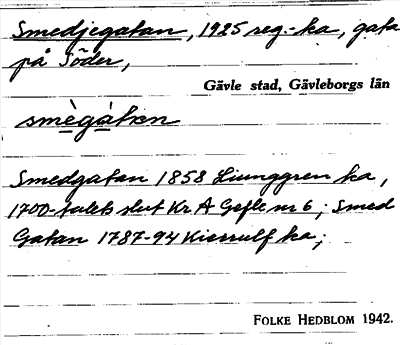 Smedjegatan, 1925 reg.-ka, gata
på Söder,
Gävle stad, Gävleborgs län
smègàtɩn
Smedgatan 1858 Ljunggren ka,
1700-talets slut Kr A Gefle nr 6; Smed
Gatan 1787-94 Kierrulf ka;
FOLKE HEDBLOM 1942.